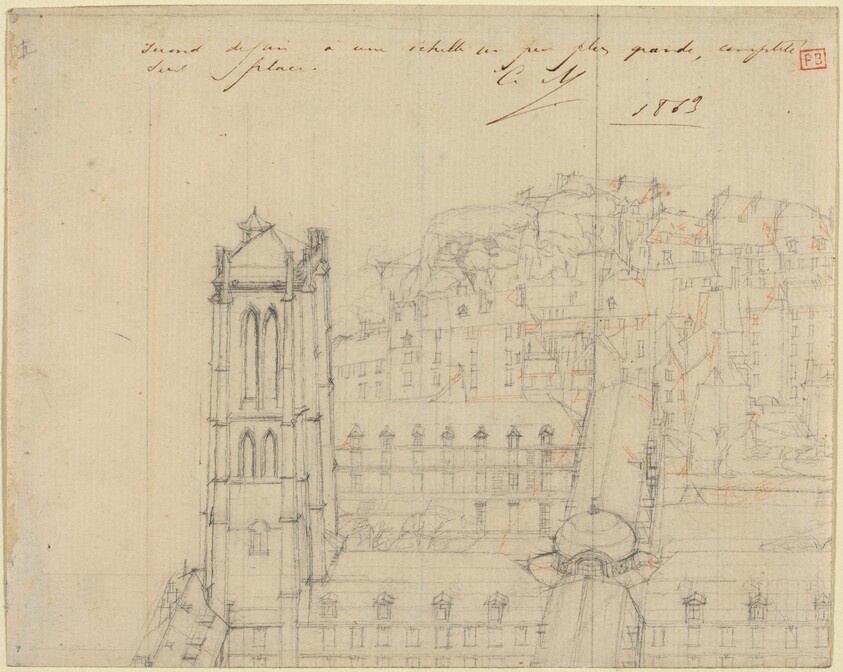 Second dessin à une échelle un peu plus grande, complété
sur place.
C. M
1863
PB